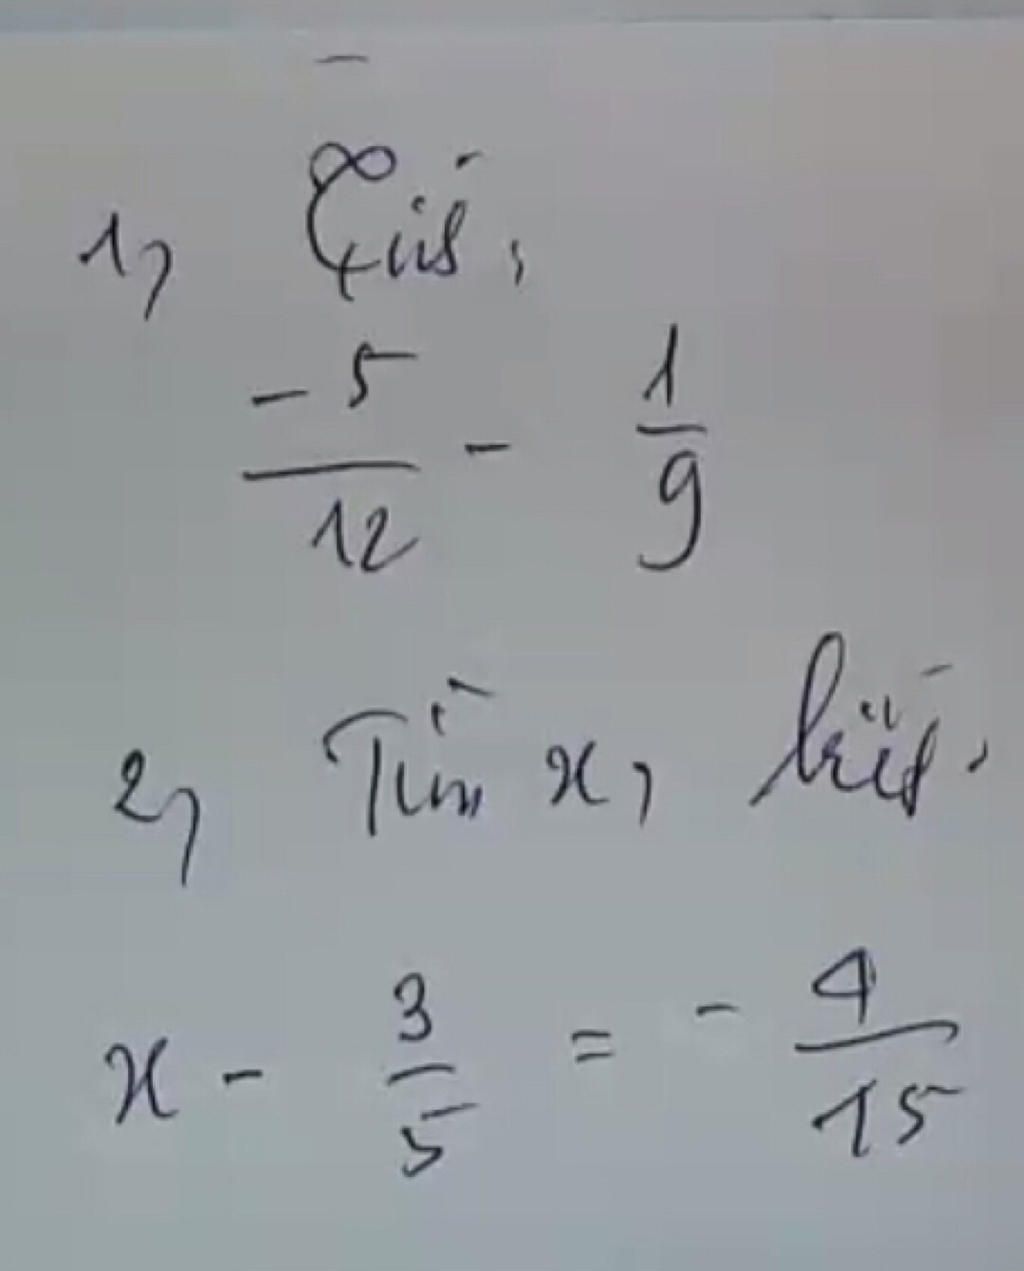 1, Tính,
-5/12 - 1/9
2, Tìm x, biết,
x - 3/5 = - 4/15